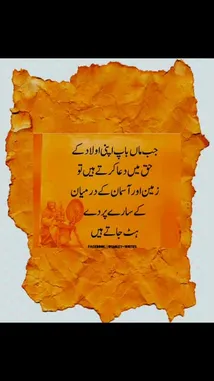 جب ماں باپ اپنی اولاد کے
حق میں دعا کرتے ہیں تو
زمین اور آسمان کے درمیان
کے سارے پردے
ہٹ جاتے ہیں